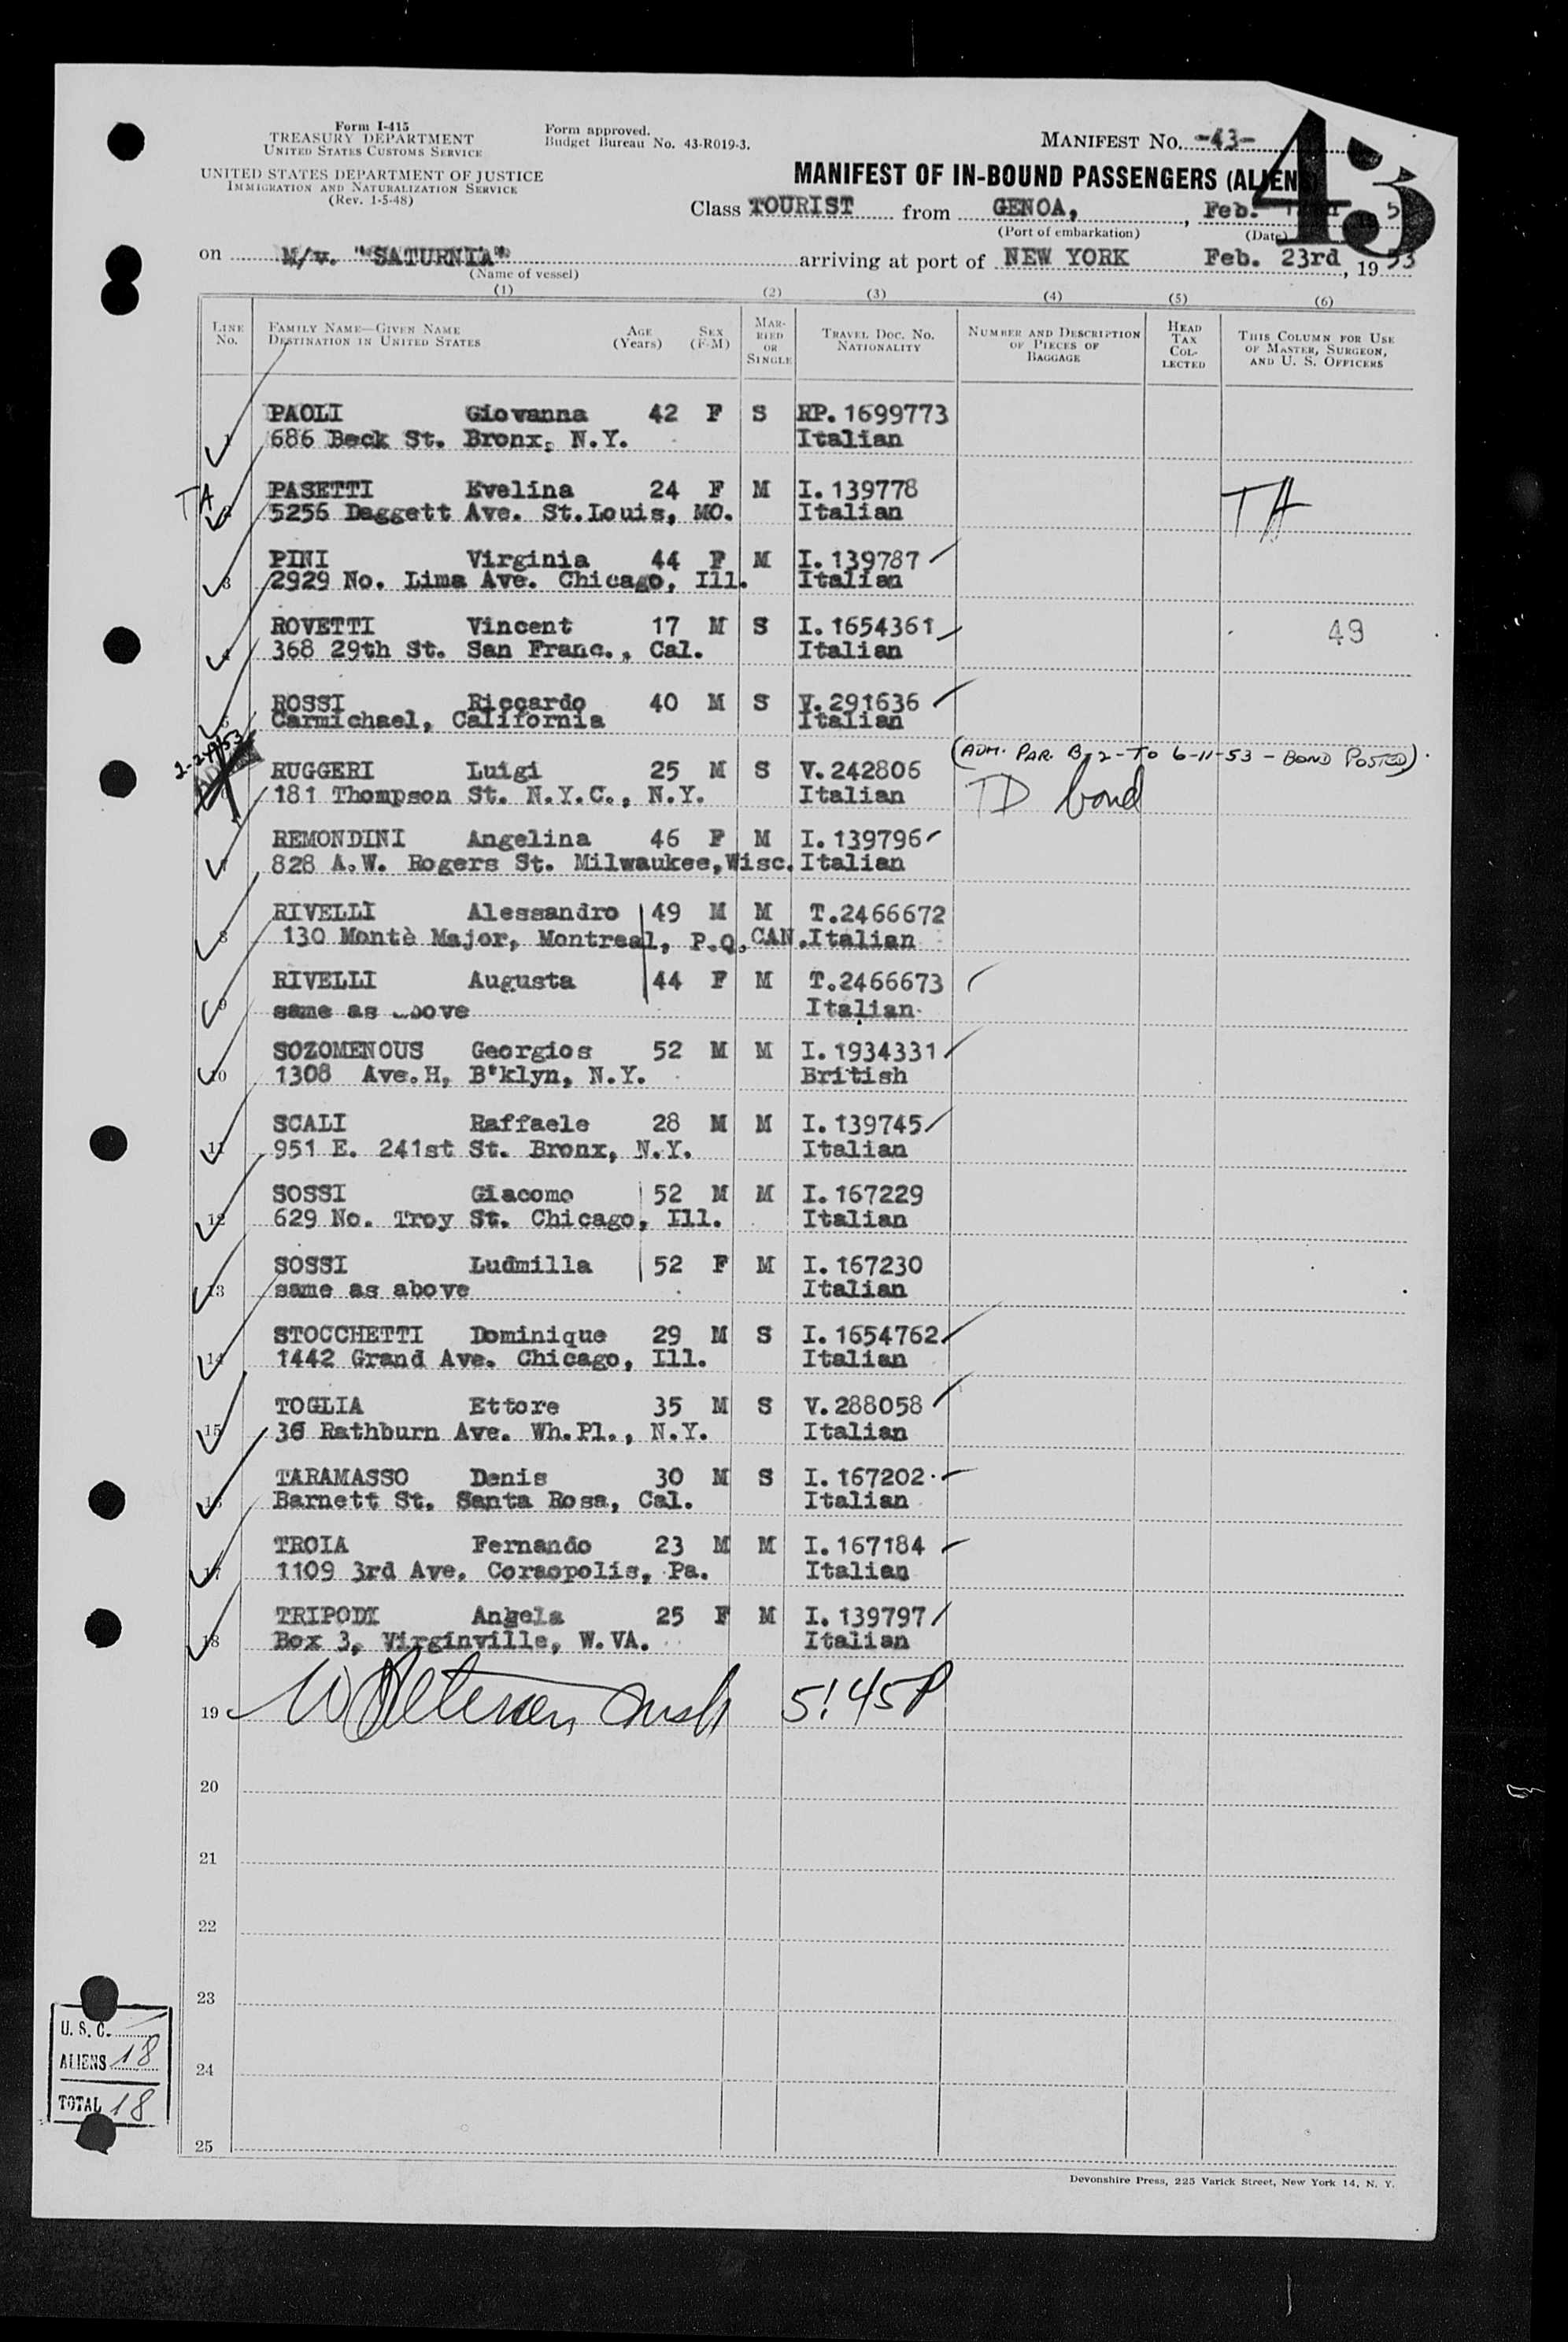 Form I-415
TREASURY DEPARTMENT
UNITED STATES CUSTOMS SERVICE
UNITED STATES DEPARTMENT OF JUSTICE
IMMIGRATION AND NATURALIZATION SERVICE
(Rev. 1-5-48)
Form approved.
Budget Bureau No. 43-R019-3.
MANIFEST NO. -43-
43
MANIFEST OF IN-BOUND PASSENGERS (ALIENS)
Class TOURIST from GENOA, , Feb.
(Port of embarkation) (Date)
on M/v. "SATURNIA" arriving at port of NEW YORK Feb. 23rd, 1953
(Name of vessel)
(1) (2) (3) (4) (5) (6)
LINE NO. FAMILY NAME—GIVEN NAME DESTINATION IN UNITED STATES AGE (Years) SEX (F-M) MARRIED OR SINGLE TRAVEL DOC. NO. NATIONALITY NUMBER AND DESCRIPTION OF PIECES OF BAGGAGE HEAD TAX COLLECTED THIS COLUMN FOR USE OF MASTER, SURGEON, AND U. S. OFFICERS
PAOLI Giovanna 42 F S RP.1699773
1 686 Beck St. Bronx, N.Y. Italian
TA PASETTI Evelina 24 F M I.139778 TA
5256 Daggett Ave. St.Louis, MO. Italian
PINI Virginia 44 F M I.139787
3 2929 No. Lima Ave. Chicago, Ill. Italian
ROVETTI Vincent 17 M S I.1654361 49
4 368 29th St. San Franc., Cal. Italian
ROSSI Riccardo 40 M S V.291636
5 Carmichael, California Italian
2-24-53 (ADM. PAR. B, 2-TO 6-11-53 - BOND POSTED).
RUGGERI Luigi 25 M S V.242806
181 Thompson St. N.Y.C., N.Y. Italian TD bond
REMONDINI Angelina 46 F M I.139796
7 828 A.W. Rogers St. Milwaukee,Wisc. Italian
RIVELLI Alessandro 49 M M T.2466672
8 130 Montè Major, Montreal, P.Q. CAN. Italian
RIVELLI Augusta 44 F M T.2466673
9 same as above Italian
SOZOMENOUS Georgios 52 M M I.1934331
10 1308 Ave.H, B'klyn, N.Y. British
SCALI Raffaele 28 M M I.139745
11 951 E. 241st St. Bronx, N.Y. Italian
SOSSI Giacomo 52 M M I.167229
12 629 No. Troy St. Chicago, Ill. Italian
SOSSI Ludmilla 52 F M I.167230
13 same as above Italian
STOCCHETTI Dominique 29 M S I.1654762
14 1442 Grand Ave. Chicago, Ill. Italian
TOGLIA Ettore 35 M S V.288058
15 36 Rathburn Ave. Wh.Pl., N.Y. Italian
TARAMASSO Denis 30 M S I.167202
16 Barnett St. Santa Rosa, Cal. Italian
TROIA Fernando 23 M M I.167184
17 1109 3rd Ave. Coraopolis, Pa. Italian
TRIPODI Angela 25 F M I.139797
18 Box 3, Virginville, W.VA. Italian
19 5:45P
20
21
22
23
24
25
U. S. C.
ALIENS 18
TOTAL 18
Devonshire Press, 225 Varick Street, New York 14, N. Y.